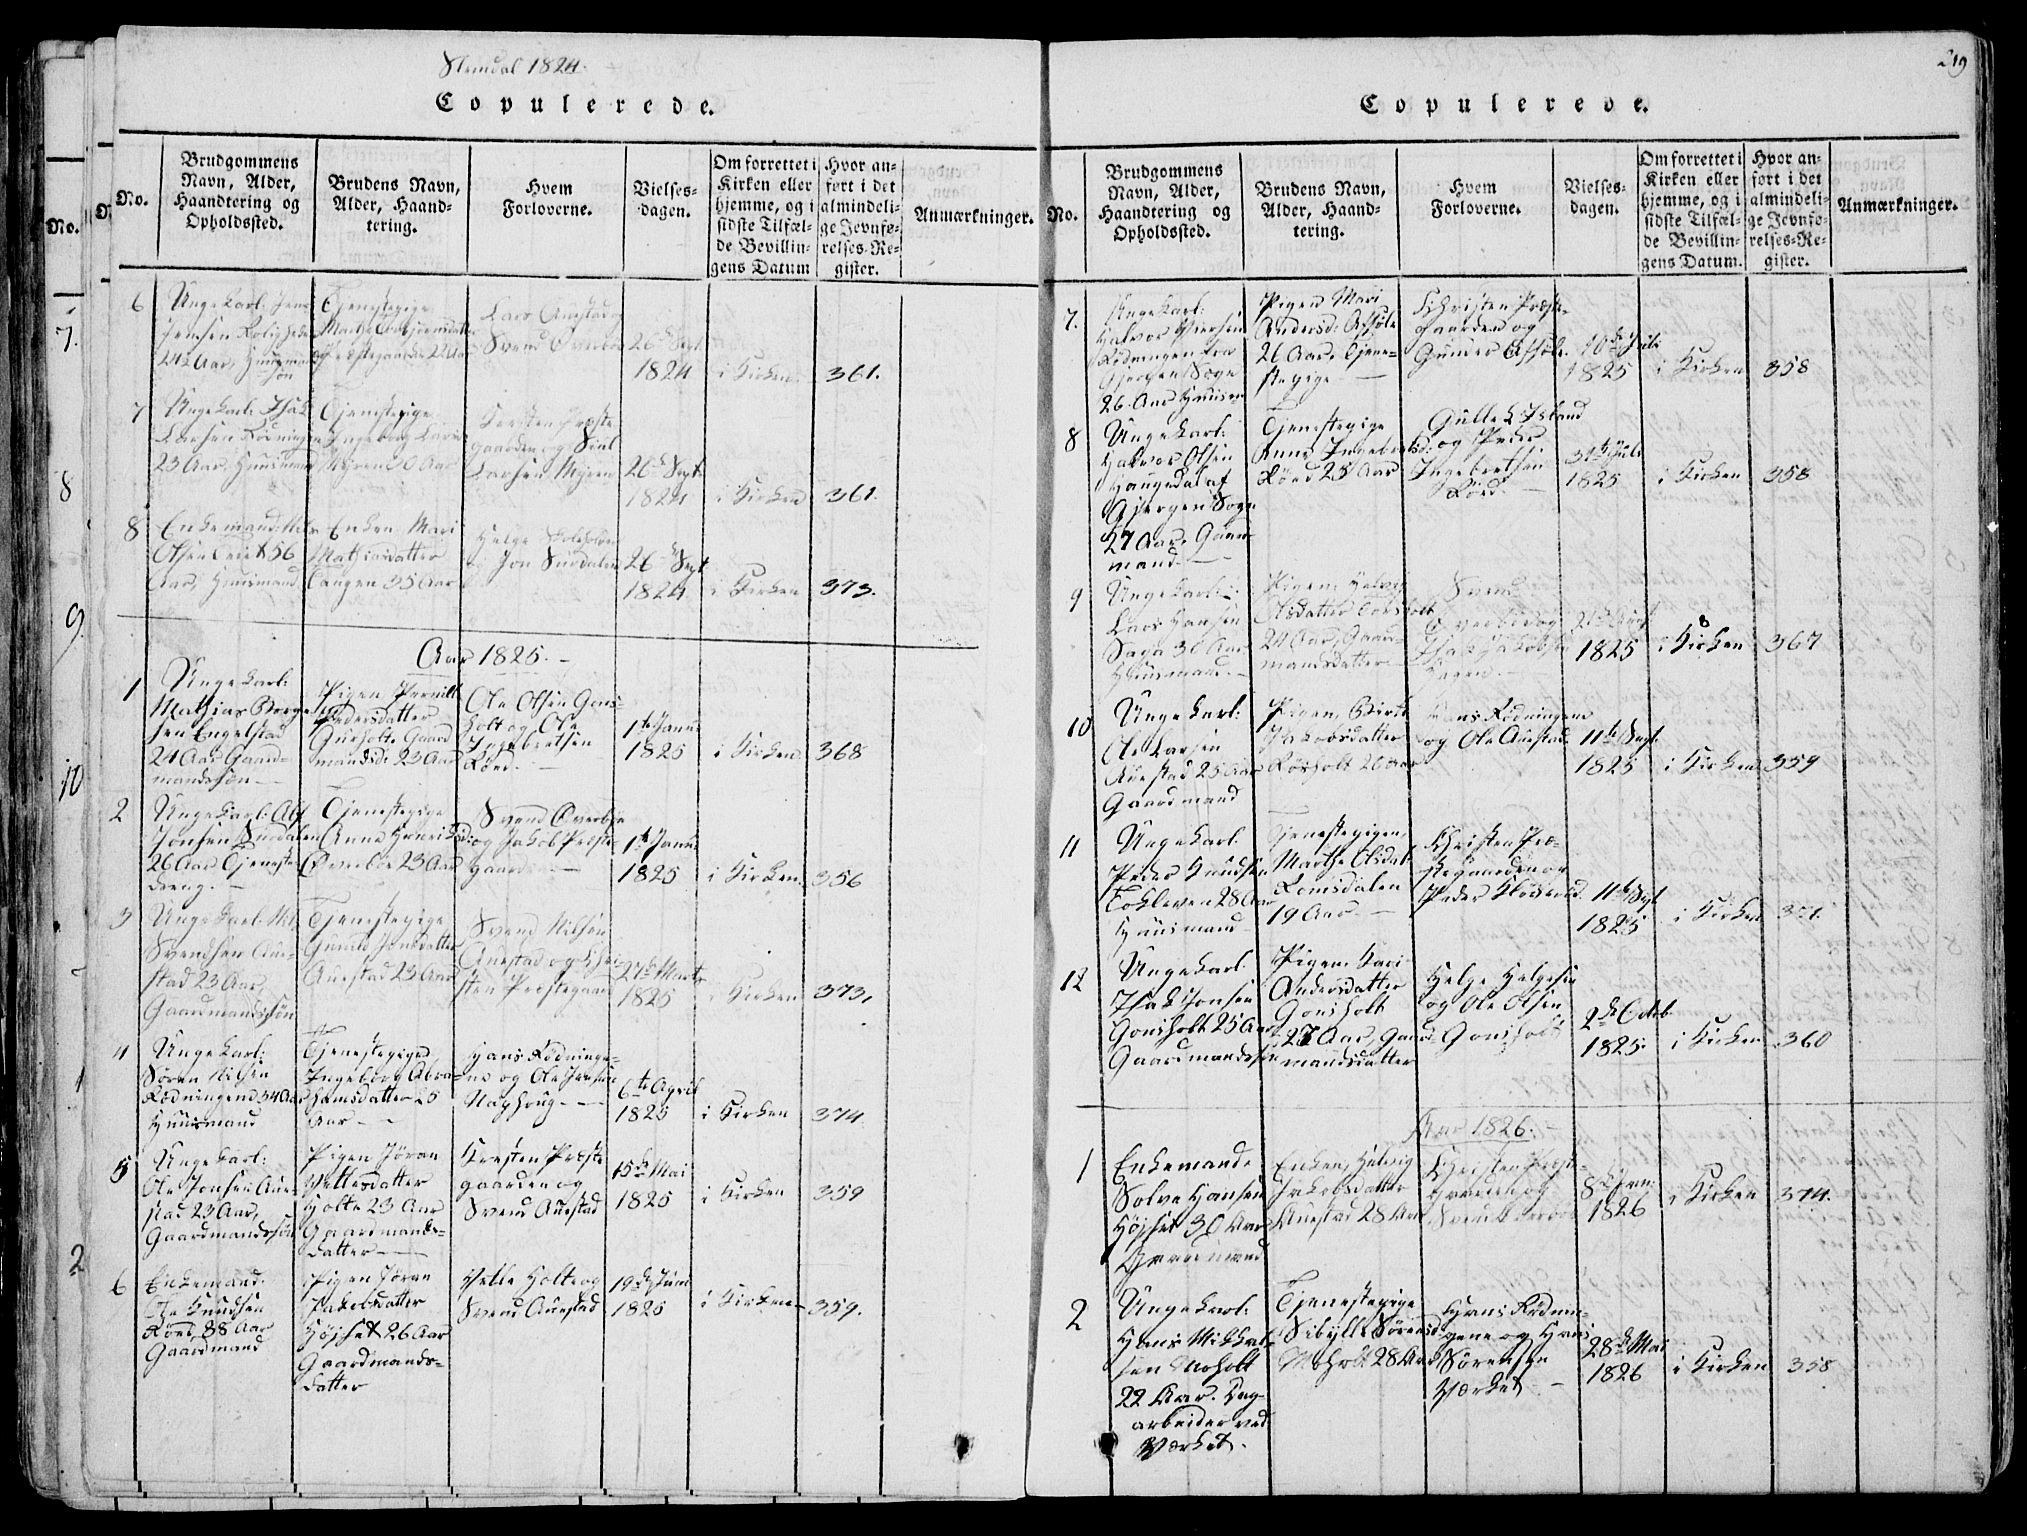 Slemdal 1824.
Copulerede.
No.
Brudgommens Navn, Alder, Haandtering og Opholdssted.
Brudens Navn, Alder, Haandtering.
Hvem Forloverne.
Vielsesdagen.
Om forrettet i Kirken eller hjemme, og i sidste Tilfælde Bevillingens Datum
Hvor anført i det almindelige Jevnførelses-Register.
Anmærkninger.
6
Ungekarl: Jens
24 Aar, Huusmands
søn
Tjenestepige
Præstegaarden 22 Aar
Lars Auestad og
Svend Øverbøe
26de Sept
1824
i Kirken
361.
7
Ungekarl: Isak
Larsen Rødningen
23 Aar, Huusmand
Tjenestepige
Ingeborg Larsd
Myren 30 Aar
Kersten Præste
gaarden og
Larsen Myren
26de Sept
1824
i Kirken
361.
8
Enkemand: Nils
Olsen 56
Aar, Huusmand
Enken Mari
Mathiasdatter
Langen 35 Aar
Helge
Jon Surdalen
26de Sept
1824
i Kirken
373.
Aar 1825.
1
Ungekarl:
Mathias Borge
sen Engelstad
24 Aar Gaard-
mandssøn
Pigen Pernille
Pedersdatter
Gurholt Gaard
mandsd: 23 Aar
Ole Olsen Gons-
holt og Ole
Ingebretsen
Røed.
1te Janu
1825
i Kirken
368
2
Ungekarl: Alf
Jonsen Surdalen
26 Aar Tjeneste
dreng.
Tjenestepige
Anne Henriksd:
Øverbøe 23 Aar
Svend Øverbøe
og Jakob Præste
gaarden
1te Janu
1825
i Kirken
356
3
Ungekarl: Nils
Svendsen Aue-
stad 23 Aar,
Gaardmandssøn
Tjenestepige
Gunild Jonsdatter
Auestad 23 Aar
Svend Nilsen
Auestad og Chri
sten Præstegaard
27de Marts
1825
i Kirken
373.
4
Ungekarl:
Søren Nilsen
Rødningen 34 Aar
Huusmand
Tjenestepigen
Ingeborg Abra-
hamsdatter 25
Aar
Hans Rødninge-
ne og Ole Iversen
Naphoug
6te April
1825
i Kirken
374
5
Ungekarl:
Ole Jonsen Aue-
stad 23 Aar,
Gaardmandssøn
Pigen Jøran
Vetlesdatter
Holte 23 Aar
Gaardmands-
datter
Kersten Præste
gaarden og
Svend Auestad
15de Mai
1825
i Kirken
359
6
Enkemand:
Knudsen
Røed, 38 Aar
Gaardmand
Pigen Jøran
Jakobsdatter
Højset 26 Aar
Gaardmands-
datter
Vetle Holte og
Svend Auestad
19de Juni
1825
i Kirken
359.
219
Copulerede.
No.
Brudgommens Navn, Alder, Haandtering og Opholdssted.
Brudens Navn, Alder, Haandtering.
Hvem Forloverne.
Vielsesdagen.
Om forrettet i Kirken eller hjemme, og i sidste Tilfælde Bevillingens Datum.
Hvor anført i det almindelige Jevnførelses-Register.
Anmærkninger.
7.
Ungekarl:
Halvor Iversen
Rødningen fra
Gjerpen Sogn
26 Aar Huusm
Pigen Mari
Andersd:
26 Aar, Tjene-
stepige
Christen Præste-
gaarden og
Gunder
10de Juli
1825
i Kirken
358
8
Ungekarl:
Halvor Olsen
af
Gjerpen Sogn
27 Aar. Gaard
mand.
Tjenestepige
Anne Ingebretsd:
Røed 25 Aar
Gullek Island
og Peder
Ingebretsen
Røed.
31te Juli
1825
i Kirken
358
9
Ungekarl:
Lars Hansen
Saga 30 Aar
Huusmand.
Pigen Helvig
Olsdatter
24 Aar, Gaard-
mandsdatter
Svend
Øverbøe og
Isak Jakobsen
Hagen.
21de Aug
1825
i Kirken
367
10
Ungekarl:
Ole Larsen
Auestad 25 Aar
Gaardmand
Pigen, Birte
Jakobsdatter
Rørholt 20 Aar
Hans Rødningene
og Ole Auestad
11te Sept.
1825
i Kirken
359
11
Ungekarl:
Peder Knudsen
Tokleven 28 Aar
Huusmand
Tjenestepigen,
Marthe Olsdat.
Romsdalen
19 Aar
Christen Præ-
stegaarden og
Peder Kløverød
11te Sept
1825
i Kirken
371.
12
Ungekarl.
Isak Jonsen
Gonsholt 25 Aar
Gaardmandssøn
Pigen Kari
Andersdatter
Gonsholt
27 Aar, Gaard
mandsdatter
Helge Helgesen
og Ole Olsen
Gonsholt
2de Octob.
1825.
i Kirken
360
Aar 1826.
1
Enkemand:
Solve Hansen
Højset 30 Aar
Gaardmand
Enken, Helvig
Jakobsdatter
Auestad 28 Aar
Christen Præst-
gaarden og
Svend Øverbøe
8de Jan:
1826
i Kirken
374.
2
Ungekarl:
Hans Mikkel-
sen Moholt
22 Aar. Dag-
arbeider ved
Værket.
Tjenestepige
Sibylle Sørensd
Moholt 28 Aar
Hans Rødnin-
gene og Hans
Sørensen
Værket
28de Mai
1826
i Kirken
358